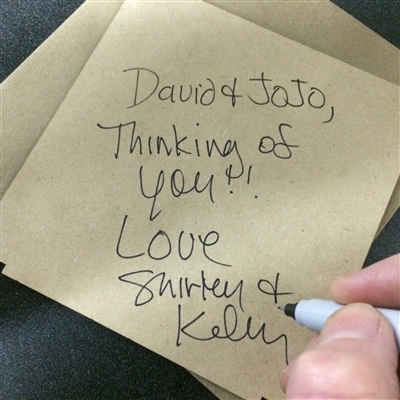 David & JoJo,
Thinking of
you!!
Love
Shirley &
Kelly